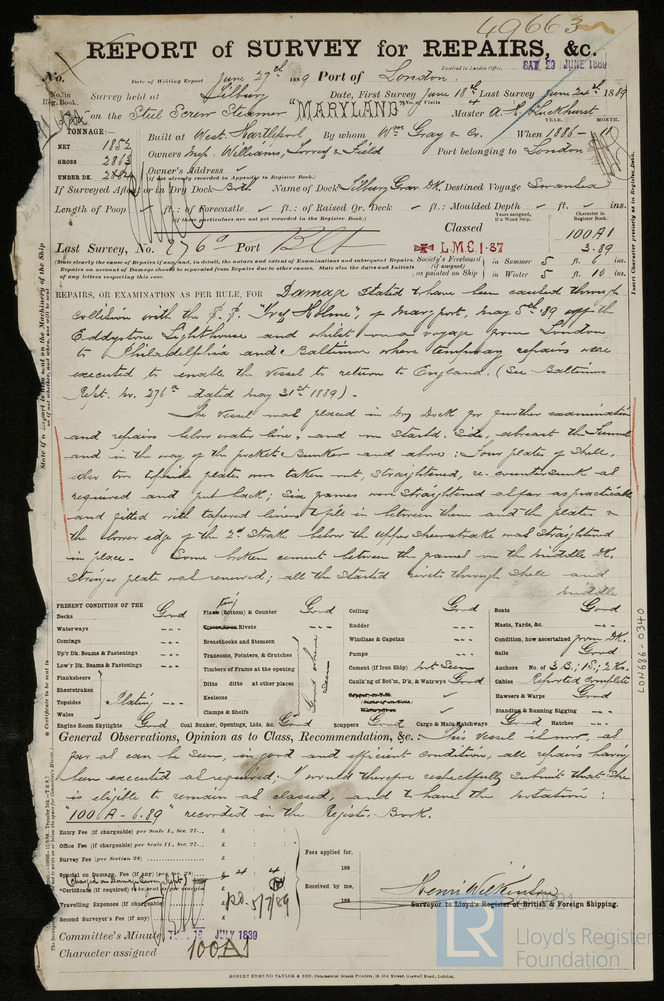 49663
REPORT of SURVEY for REPAIRS, &c.
No. Date of Writing Report June 27th 1889 Port of London Received in London Office, SAT. 29 JUNE 1889
No. in Reg. Book. Survey held at Tilbury Date, First Survey June 18th Last Survey June 24th 1889
on the Steel Screw Steamer "MARYLAND" No. of Visits 4 Master A. E. Luckhurst
YEAR. MONTH.
TONNAGE:—
NET 1852
GROSS 2863
UNDER DK.
Built at West Hartlepool By whom Wm Gray & Co. When 1886 - 11
Owners Mess. Williams, Torrey & Field Port belonging to London
Owner's Address
(if not already recorded in Appendix to Register Book.)
If Surveyed Afloat or in Dry Dock Both Name of Dock Tilbury Grav. Dk. Destined Voyage Swansea
Length of Poop ft.: of Forecastle ft.: of Raised Qr. Deck ft.: Moulded Depth ft. ins.
(if these particulars are not yet recorded in the Register Book.)
Years assigned, if a Wood Ship.
Character in Register Book.
Classed 100A1
Last Survey, No. 276a Port Blt L.M.C. 1-87 3.89
(State clearly the cause of Repairs if any; and, in detail, the nature and extent of Examinations and subsequent Repairs. Repairs on account of Damage should be separated from Repairs due to other causes. State also the dates and initials of any letters respecting this case.
Society's Freeboard (if assigned) as painted on Ship
in Summer 5 ft. 6 ins.
in Winter 5 ft. 10 ins.
REPAIRS, OR EXAMINATION AS PER RULE, FOR Damage stated to have been caused through
collision with the S.S. "Ivy Holme", of Maryport, May 5th '89 off the
Eddystone Lighthouse and whilst on a voyage from London
to Philadelphia and Baltimore where temporary repairs were
executed to enable the vessel to return to England. (See Baltimore
Rept. No. 276a dated May 31st 1889).
The vessel was placed in Dry Dock for further examination
and repairs below water line, and on Starbd. Side, abreast the Funnel
and in the way of the pocket Bunker and above: Four plates of Shell,
also two topside plates were taken out, straightened, re-countersunk as
required and put back; Six frames were straightened as far as practicable
and fitted with tapered liners & pce in between them and the plates &
the lower edge of the 2d Strake below the upper sheerstrake was straightened
in place. Some broken cement between the frames on the middle Dk.
Stringer plate was renewed; all the started rivets through shell and
middle
PRESENT CONDITION OF THE
Decks Good
Waterways
Comings
Up'r Dk. Beams & Fastenings
Low'r Dk. Beams & Fastenings
Planksheers
Sheerstrakes
Topsides Plating
Wales
Engine Room Skylights Good
Plating (Bottom) & Counter Good
Rivets
Breasthooks and Stemson
Transoms, Pointers, & Crutches
Timbers of Frame at the opening
Ditto ditto at other places
Keelsons
Clamps & Shelfs
Good where seen
Coal Bunker, Openings, Lids, &c. Good
Ceiling Good
Rudder
Windlass & Capstan
Pumps
Cement (if Iron Ship) not Seen
Caulk'ng of Bot'm, D'k, & Watrwys Good
Scuppers Good
Cargo & Main Hatchways Good
Boats Good
Masts, Yards, &c.
Condition, how ascertained from Dk.
Sails Good
Anchors No. of 3 B.; 1 S.; 2 Ks.
Cables Reported complete
Hawsers & Warps Good
Standing & Running Rigging
Hatches
General Observations, Opinion as to Class, Recommendation, &c.:— This vessel is now, as
far as can be seen, in good and efficient condition, all repairs having
been executed as required; I would therefore respectfully submit that She
is eligible to remain as classed, and to have the notation:
"100 A - 6.89" recorded in the Register Book.
Entry Fee (if chargeable) per Scale I., Sec. 27 £
Office Fee (if chargeable) per Scale II., Sec. 27 £
Survey Fee (per Section 28) £
Special or Damage Fee (if any) (per Sec. 28) £ 4 4
(Charged on Damage Survey Rept.)
*Certificate (if required) to be sent as per margin
Travelling Expenses (if chargeable) £
Second Surveyor's Fee (if any) £
Fees applied for, 188
Received by me, 188
5/7/89
Henri Wilkinson
Surveyor to Lloyd's Register of British & Foreign Shipping.
Committee's Minute 16 JULY 1889
Character assigned 100A1
ROBERT EDMUND TAYLOR & SON, Commercial Steam Printers, 19, Old Street, Goswell Road, London.
LON686-0340
State if a Report is also now sent on the Machinery of the Ship
Insert Character precisely as in Register Book.
LR
© 2021
Lloyd's Register
Foundation